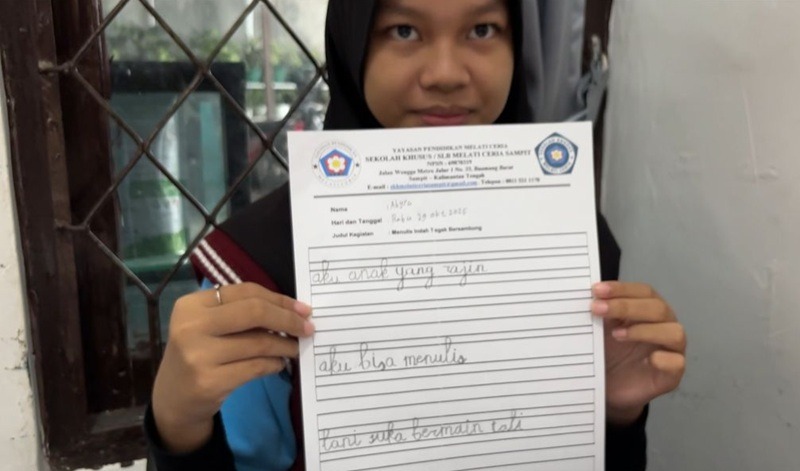 YAYASAN PENDIDIKAN MELATI CERIA
SEKOLAH KHUSUS / SLB MELATI CERIA SAMPIT
NPSN : 69870319
Jalan Wengga Metro Jalur 1 No. 33, Baamang Barat
Sampit - Kalimantan Tengah
Nama :
Hari dan Tanggal : Rabu 29 okt 2025
Judul Kegiatan : Menulis Indah Tegak Bersambung
aku anak yang rajin
aku bisa menulis
tani suka bermain tali